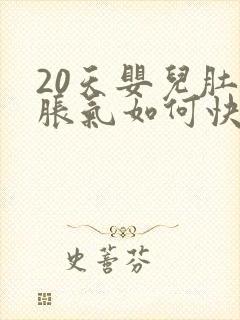 20天嬰兒肚
脹氣如何快
史薈芬